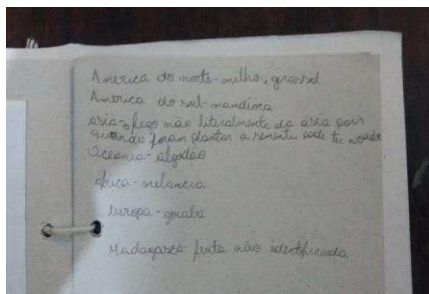 America do norte-milho, girassol
America do sul-mandioca
asia-figo não literalmente da asia pois
quando foram plantar a semente pode ter
Oceania-algodão
africa-melancia
europa-goiaba
Madagascá-fruta não identificada